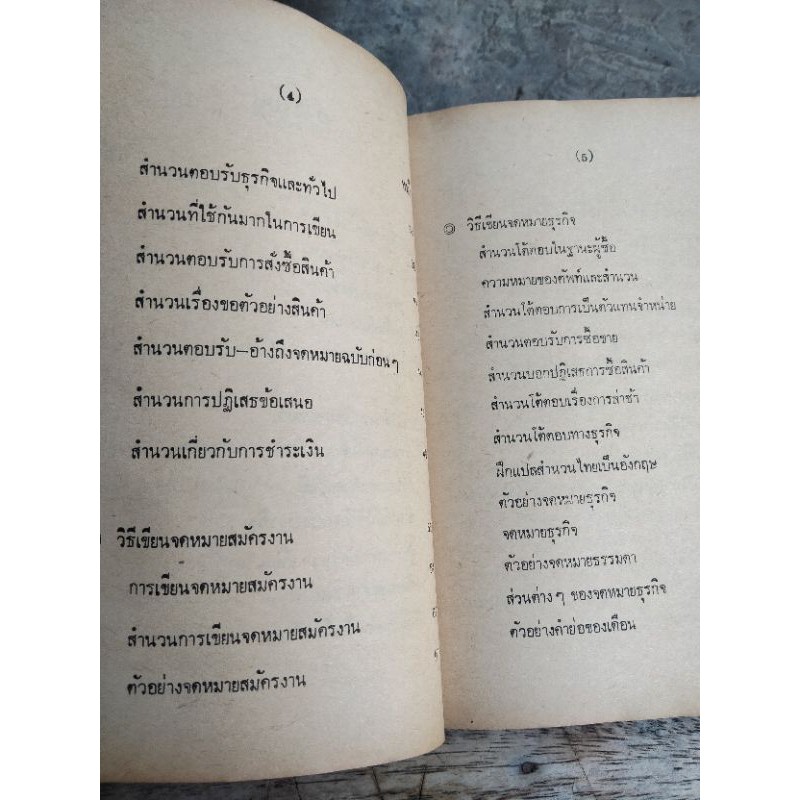 (4)
สำนวนตอบรับธุรกิจและทั่วไป
สำนวนที่ใช้กันมากในการเขียน
สำนวนตอบรับการสั่งซื้อสินค้า
สำนวนเรื่องขอตัวอย่างสินค้า
สำนวนตอบรับ–อ้างถึงจดหมายฉบับก่อนๆ
สำนวนการปฏิเสธข้อเสนอ
สำนวนเกี่ยวกับการชำระเงิน
วิธีเขียนจดหมายสมัครงาน
การเขียนจดหมายสมัครงาน
สำนวนการเขียนจดหมายสมัครงาน
ตัวอย่างจดหมายสมัครงาน
(5)
วิธีเขียนจดหมายธุรกิจ
สำนวนโต้ตอบในฐานะผู้ซื้อ
ความหมายของศัพท์และสำนวน
สำนวนโต้ตอบการเป็นตัวแทนจำหน่าย
สำนวนตอบรับการซื้อขาย
สำนวนบอกปฏิเสธการซื้อสินค้า
สำนวนโต้ตอบเรื่องการล่าช้า
สำนวนโต้ตอบทางธุรกิจ
ฝึกแปลสำนวนไทยเป็นอังกฤษ
ตัวอย่างจดหมายธุรกิจ
จดหมายธุรกิจ
ตัวอย่างจดหมายธรรมดา
ส่วนต่างๆ ของจดหมายธุรกิจ
ตัวอย่างคำย่อของเดือน